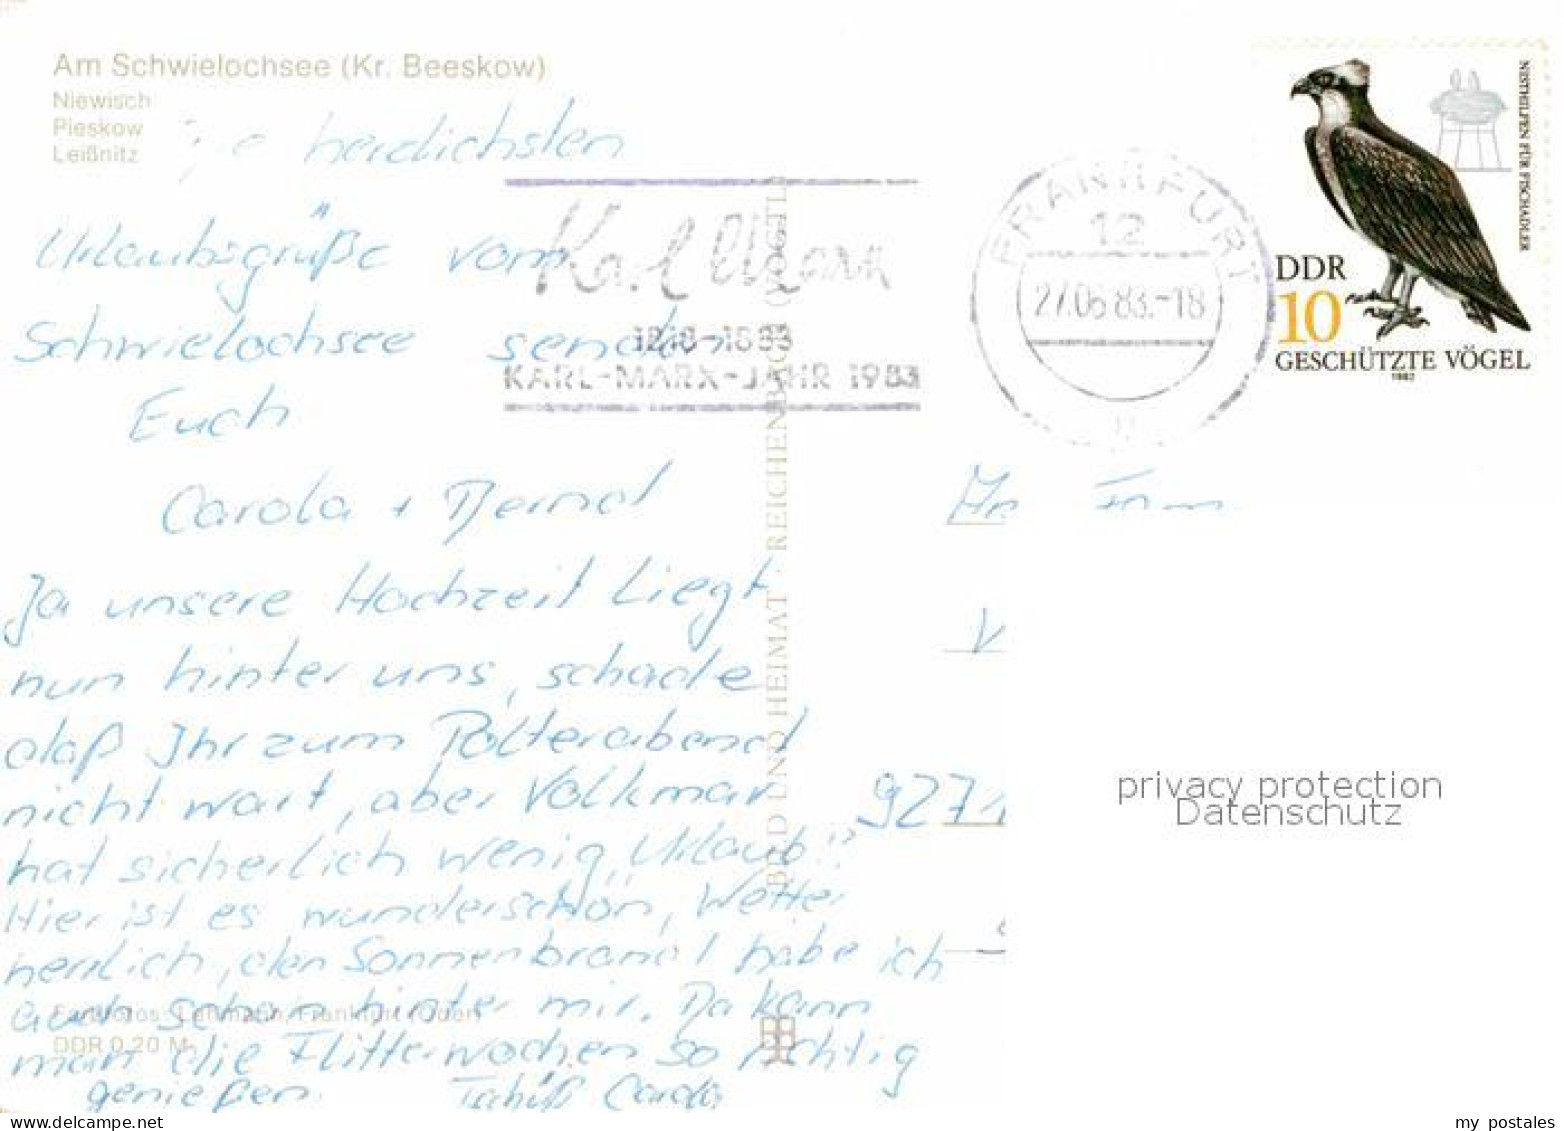 Am Schwielochsee (Kr. Beeskow)
Niewisch
Pieskow
Leißnitz
herzlichsten
Urlaubsgrüße vom
Schwielochsee senden
Euch
Carola + Bernd
Ja unsere Hochzeit liegt
nun hinter uns, schade
daß Ihr zum Polterabend
nicht wart, aber Volkmar
hat sicherlich wenig „Urlaub"
Hier ist es wunderschön, Wetter
herrlich, den Sonnenbrand habe ich
auch schon hinter mir. Da kann
man die Flitterwochen so richtig
genießen. Tschüß Carola
Farbfotos: Lehmann, Frankfurt (Oder)
DDR 0,20 M
BILD UND HEIMAT · REICHENBACH (VOGTL)
Karl Marx
1818-1883
KARL-MARX-JAHR 1983
FRANKFURT
12
27.06.83.-18
NISTHILFEN FÜR FISCHADLER
DDR
10
GESCHÜTZTE VÖGEL
1982
Fam
V
9271
privacy protection
Datenschutz
my postales